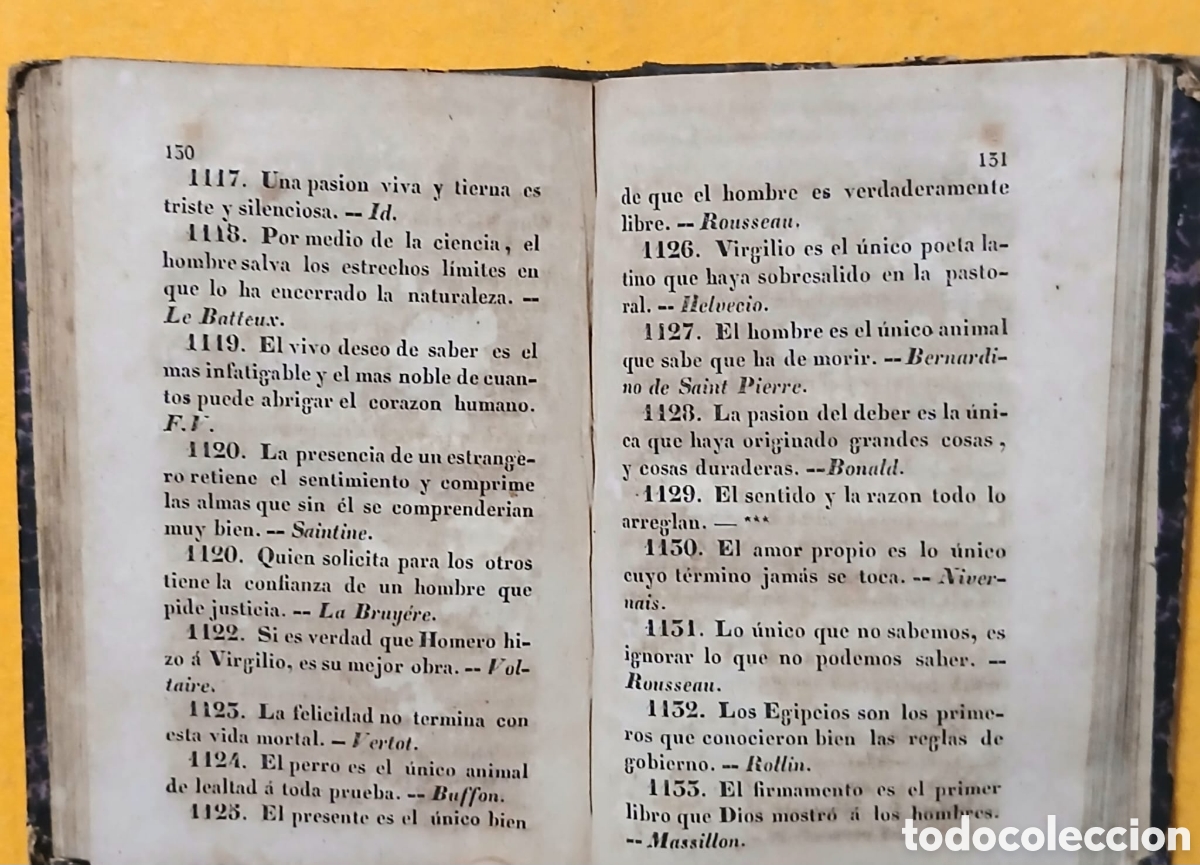 130
1117. Una pasion viva y tierna es
triste y silenciosa. -- Id.
1118. Por medio de la ciencia, el
hombre salva los estrechos límites en
que lo ha encerrado la naturaleza. --
Le Batteux.
1119. El vivo deseo de saber es el
mas infatigable y el mas noble de cuan-
tos puede abrigar el corazon humano.
F. V.
1120. La presencia de un estrange-
ro retiene el sentimiento y comprime
las almas que sin él se comprenderian
muy bien. -- Saintine.
1120. Quien solicita para los otros
tiene la confianza de un hombre que
pide justicia. -- La Bruyére.
1122. Si es verdad que Homero hi-
zo á Virgilio, es su mejor obra. -- Vol-
taire.
1123. La felicidad no termina con
esta vida mortal. -- Vertot.
1124. El perro es el único animal
de lealtad á toda prueba. -- Buffon.
1125. El presente es el único bien
131
de que el hombre es verdaderamente
libre. -- Rousseau.
1126. Virgilio es el único poeta la-
tino que haya sobresalido en la pasto-
ral. -- Helvecio.
1127. El hombre es el único animal
que sabe que ha de morir. -- Bernardi-
no de Saint Pierre.
1128. La pasion del deber es la úni-
ca que haya originado grandes cosas,
y cosas duraderas. -- Bonald.
1129. El sentido y la razon todo lo
arreglan. — ***
1130. El amor propio es lo único
cuyo término jamás se toca. -- Niver-
nais.
1131. Lo único que no sabemos, es
ignorar lo que no podemos saber. --
Rousseau.
1132. Los Egipcios son los prime-
ros que conocieron bien las reglas de
gobierno. -- Rollin.
1133. El firmamento es el primer
libro que Dios mostró á los hombres.
-- Massillon.
todocoleccion